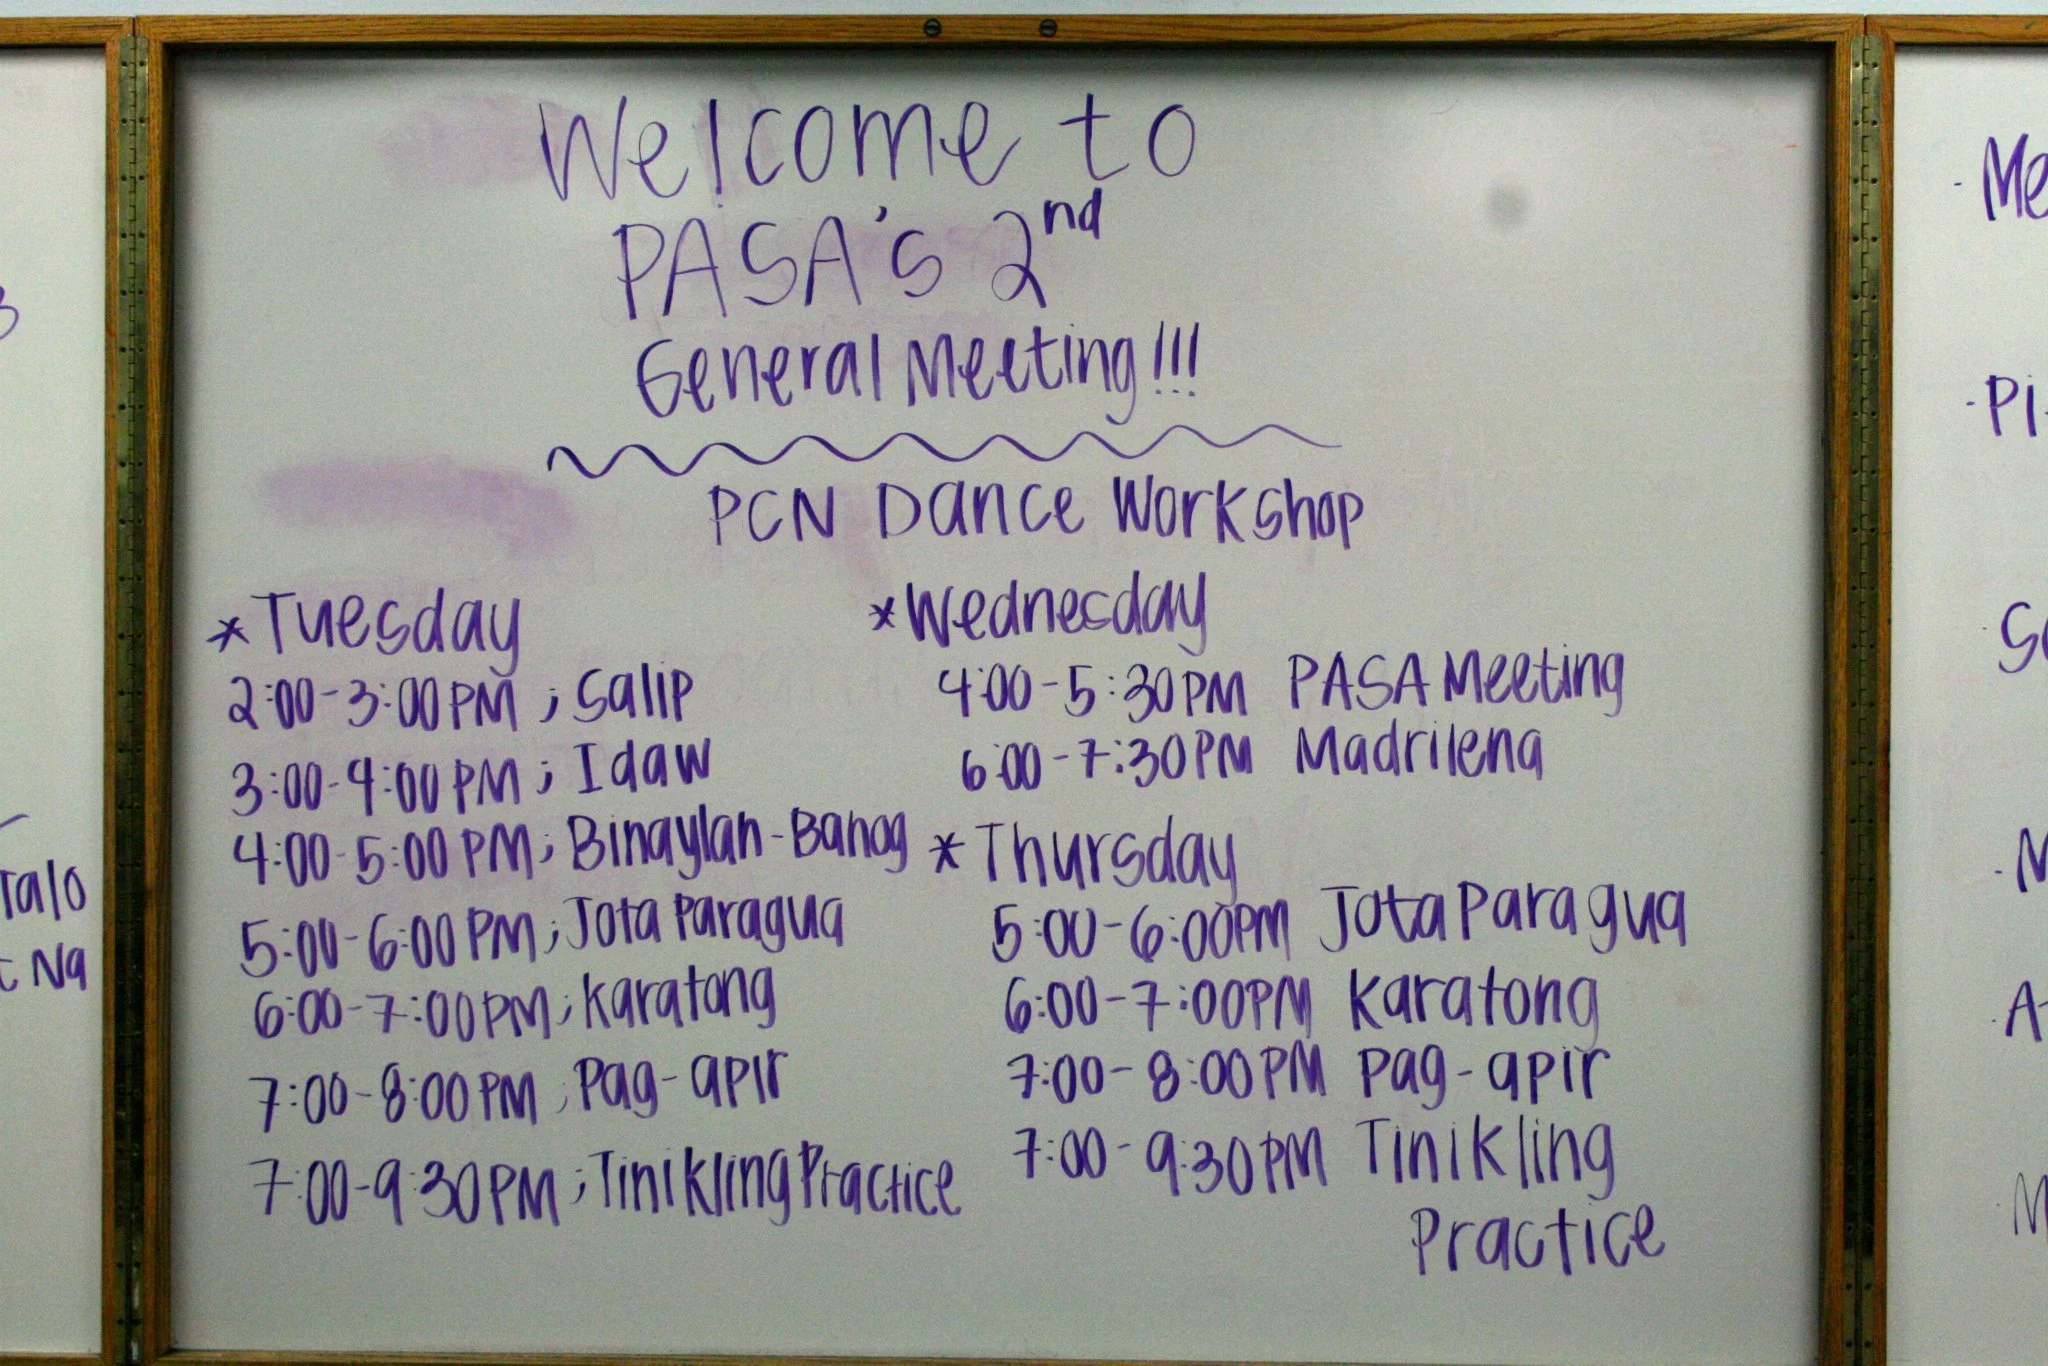 Welcome to
PASA's 2nd
General Meeting!!!
PCN Dance Workshop
*Tuesday
2:00-3:00PM ; Salip
3:00-4:00PM ; Idaw
4:00-5:00PM ; Binaylan-Banog
5:00-6:00PM ; Jota Paragua
6:00-7:00PM ; Karatong
7:00-8:00PM ; Pag-apir
7:00-9:30PM ; Tinikling Practice
*Wednesday
4:00-5:30PM PASA Meeting
6:00-7:30PM Madrilena
*Thursday
5:00-6:00PM Jota Paragua
6:00-7:00PM Karatong
7:00-8:00PM Pag-apir
7:00-9:30PM Tinikling
Practice
Talo
Na